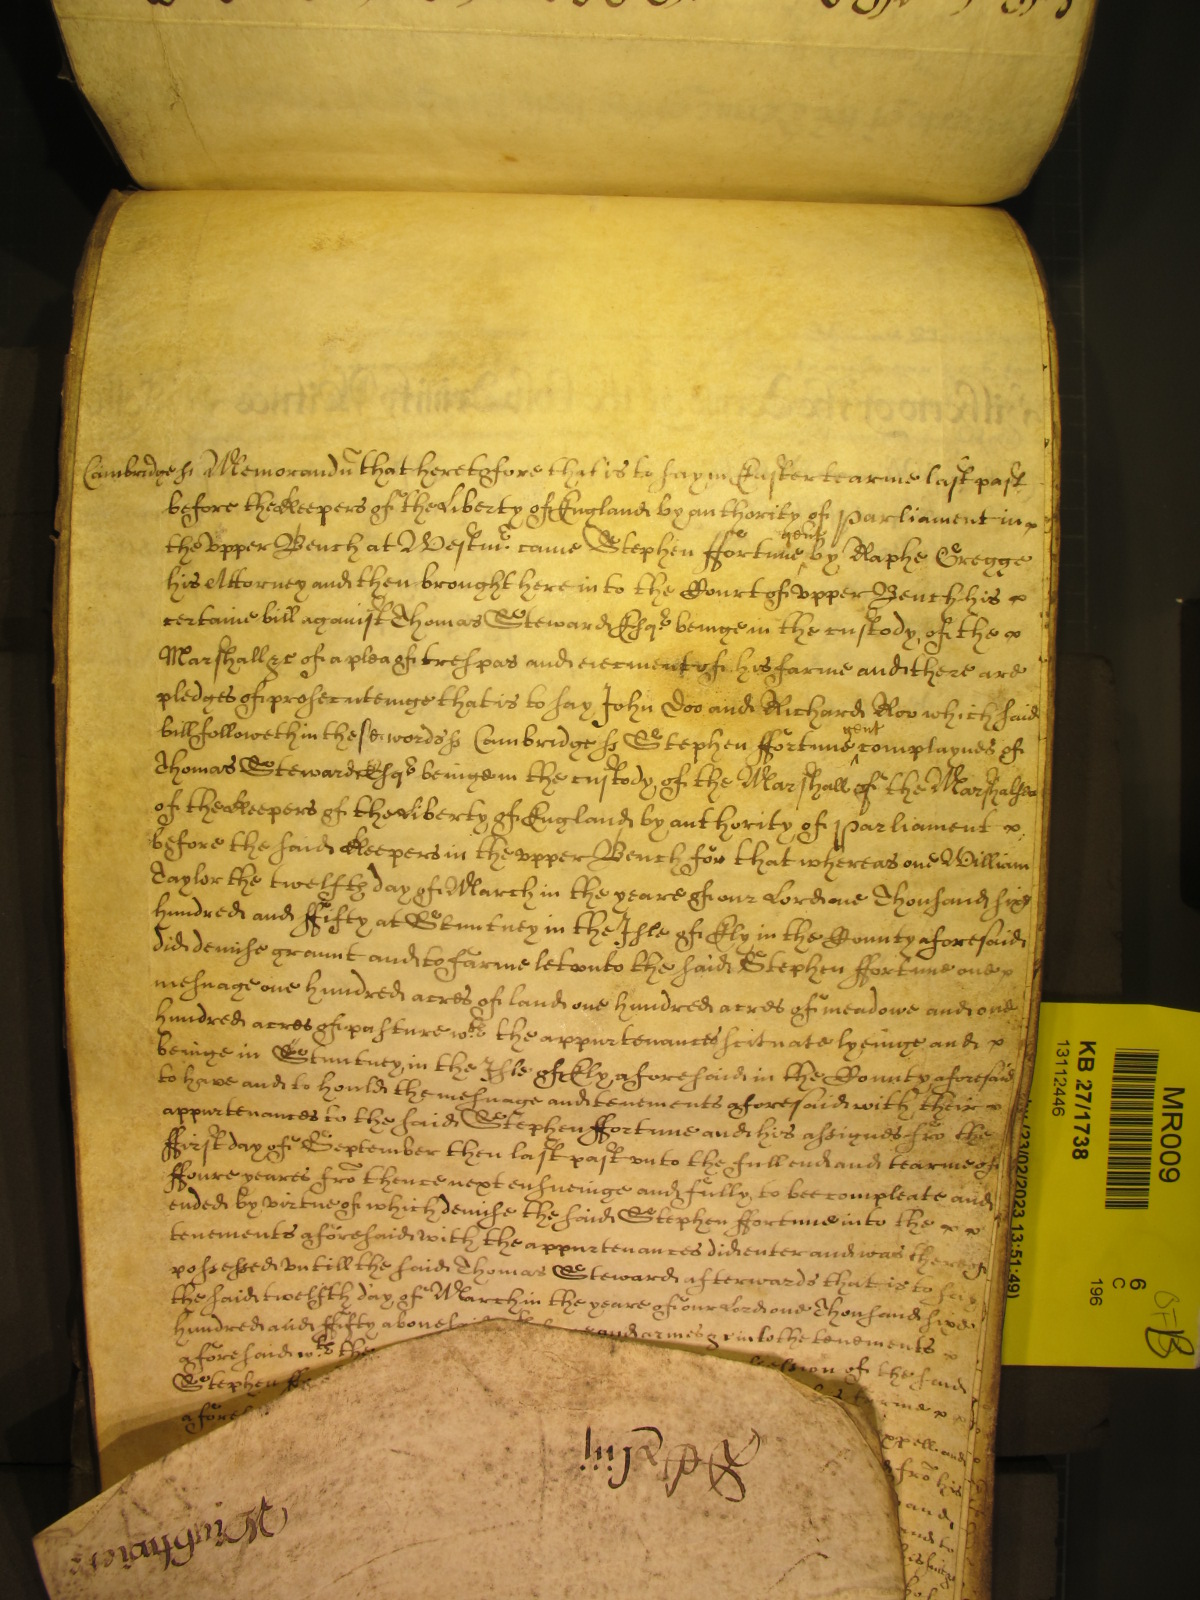 Cambridge ss Memorandũ that heretofore that is to say in Easter tearme last past
before the Keepers of the Liberty of England by authority of Parliament in
the vpper Bench at Westmr came Stephen ffortune gent by Raphe Gregge
his Attorney and then brought here in to the Court of vpper Bench his
certaine bill against Thomas Steward Esqr beinge in the custody of the
Marshall &c of a plea of trespas and eiecment of his farme and there are
pledges of prosecuteinge that is to say John Doo and Richard Roo which said
bill followeth in these words ss Cambridge ss Stephen ffortune gent complaynes of
Thomas Steward Esqr beinge in the custody of the Marshall of the Marshalsea
of the Keepers of the Liberty of England by authority of Parliament
before the said Keepers in the vpper Bench for that whereas one William
Taylor the twelfth day of March in the yeare of our Lord one Thousand sixe
hundred and ffifty at Stuntney in the Isle of Ely in the County aforesaid
did demise graunt and to farme let vnto the said Stephen ffortune one
mesuage one hundred acres of land one hundred acres of meadowe and one
hundred acres of pasture wth the appurtenances scituate lyeinge and
beinge in Stuntney in the Isle of Ely aforesaid in the County aforesaid
to have and to hould the mesuage and tenements aforesaid with their
appurtenances to the said Stephen ffortune and his assignes frõ the
ffirst day of September then last past vnto the full end and tearme of
ffoure yeares frõ thence next ensueinge and fully to bee compleate and
ended by virtue of which demise the said Stephen ffortune into the
tenements aforesaid with the appurtenances did enter and was thereof
possessed vntill the said Thomas Steward afterwards that is to say
the said twelfth day of March in the yeare of our Lord one Thousand sixe
hundred and ffifty aboue and armes &c into the tenements
aforesaid wth the of the said
Stephen ff tearme
afore
and
frõ his
and
and to
KB 27/1738
13112446
MR009
6
C
196
(23/02/2023 13:51:49)